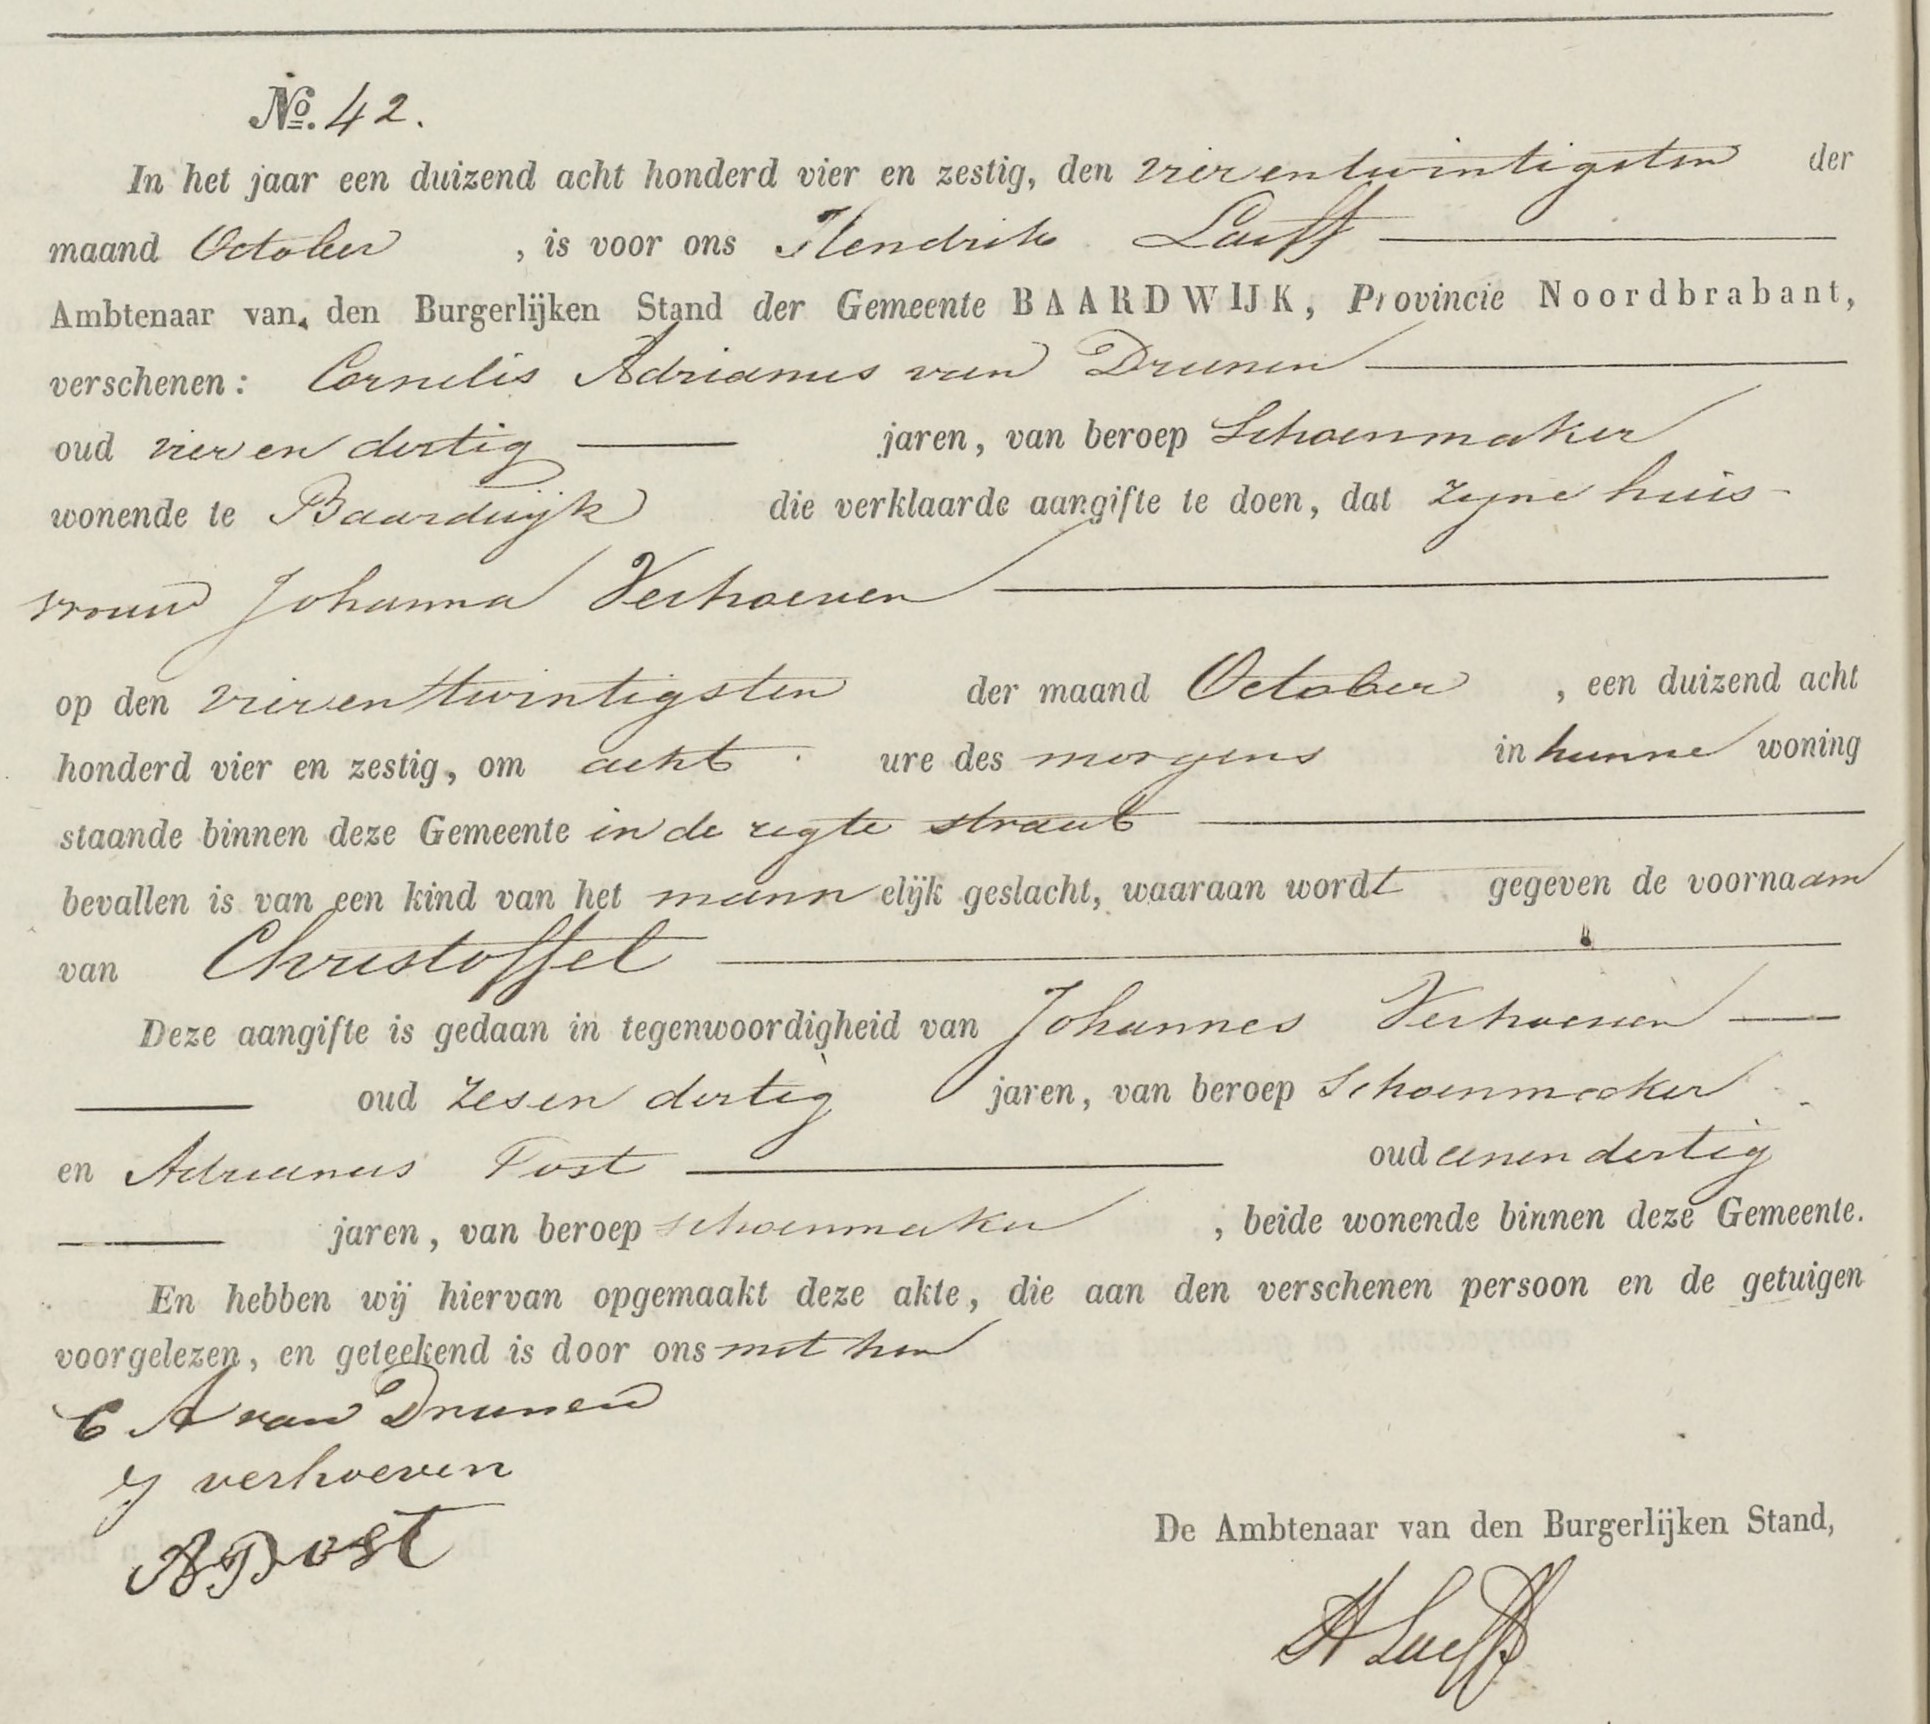 No. 42.
In het jaar een duizend acht honderd vier en zestig, den vierentwintigsten der
maand October , is voor ons Hendrik Laeff
Ambtenaar van den Burgerlijken Stand der Gemeente BAARDWIJK, Provincie Noordbrabant,
verschenen: Cornelis Adrianus van Drunen
oud vier en dertig jaren, van beroep Schoenmaker
wonende te Baardwijk die verklaarde aangifte te doen, dat zijne huis-
vrouw Johanna Verhoeven
op den vierentwintigsten der maand October , een duizend acht
honderd vier en zestig, om acht ure des morgens in hunne woning
staande binnen deze Gemeente in de regte straat
bevallen is van een kind van het mannelijk geslacht, waaraan wordt gegeven de voornaam
van Christoffel
Deze aangifte is gedaan in tegenwoordigheid van Johannes Verhoeven
oud zes en dertig jaren, van beroep Schoenmaker
en Adrianus Post oud eenen dertig
jaren, van beroep schoenmaker , beide wonende binnen deze Gemeente.
En hebben wij hiervan opgemaakt deze akte, die aan den verschenen persoon en de getuigen
voorgelezen, en geteekend is door ons met hen
C A van Drunen
J verhoeven
A Post
De Ambtenaar van den Burgerlijken Stand,
H Laeff